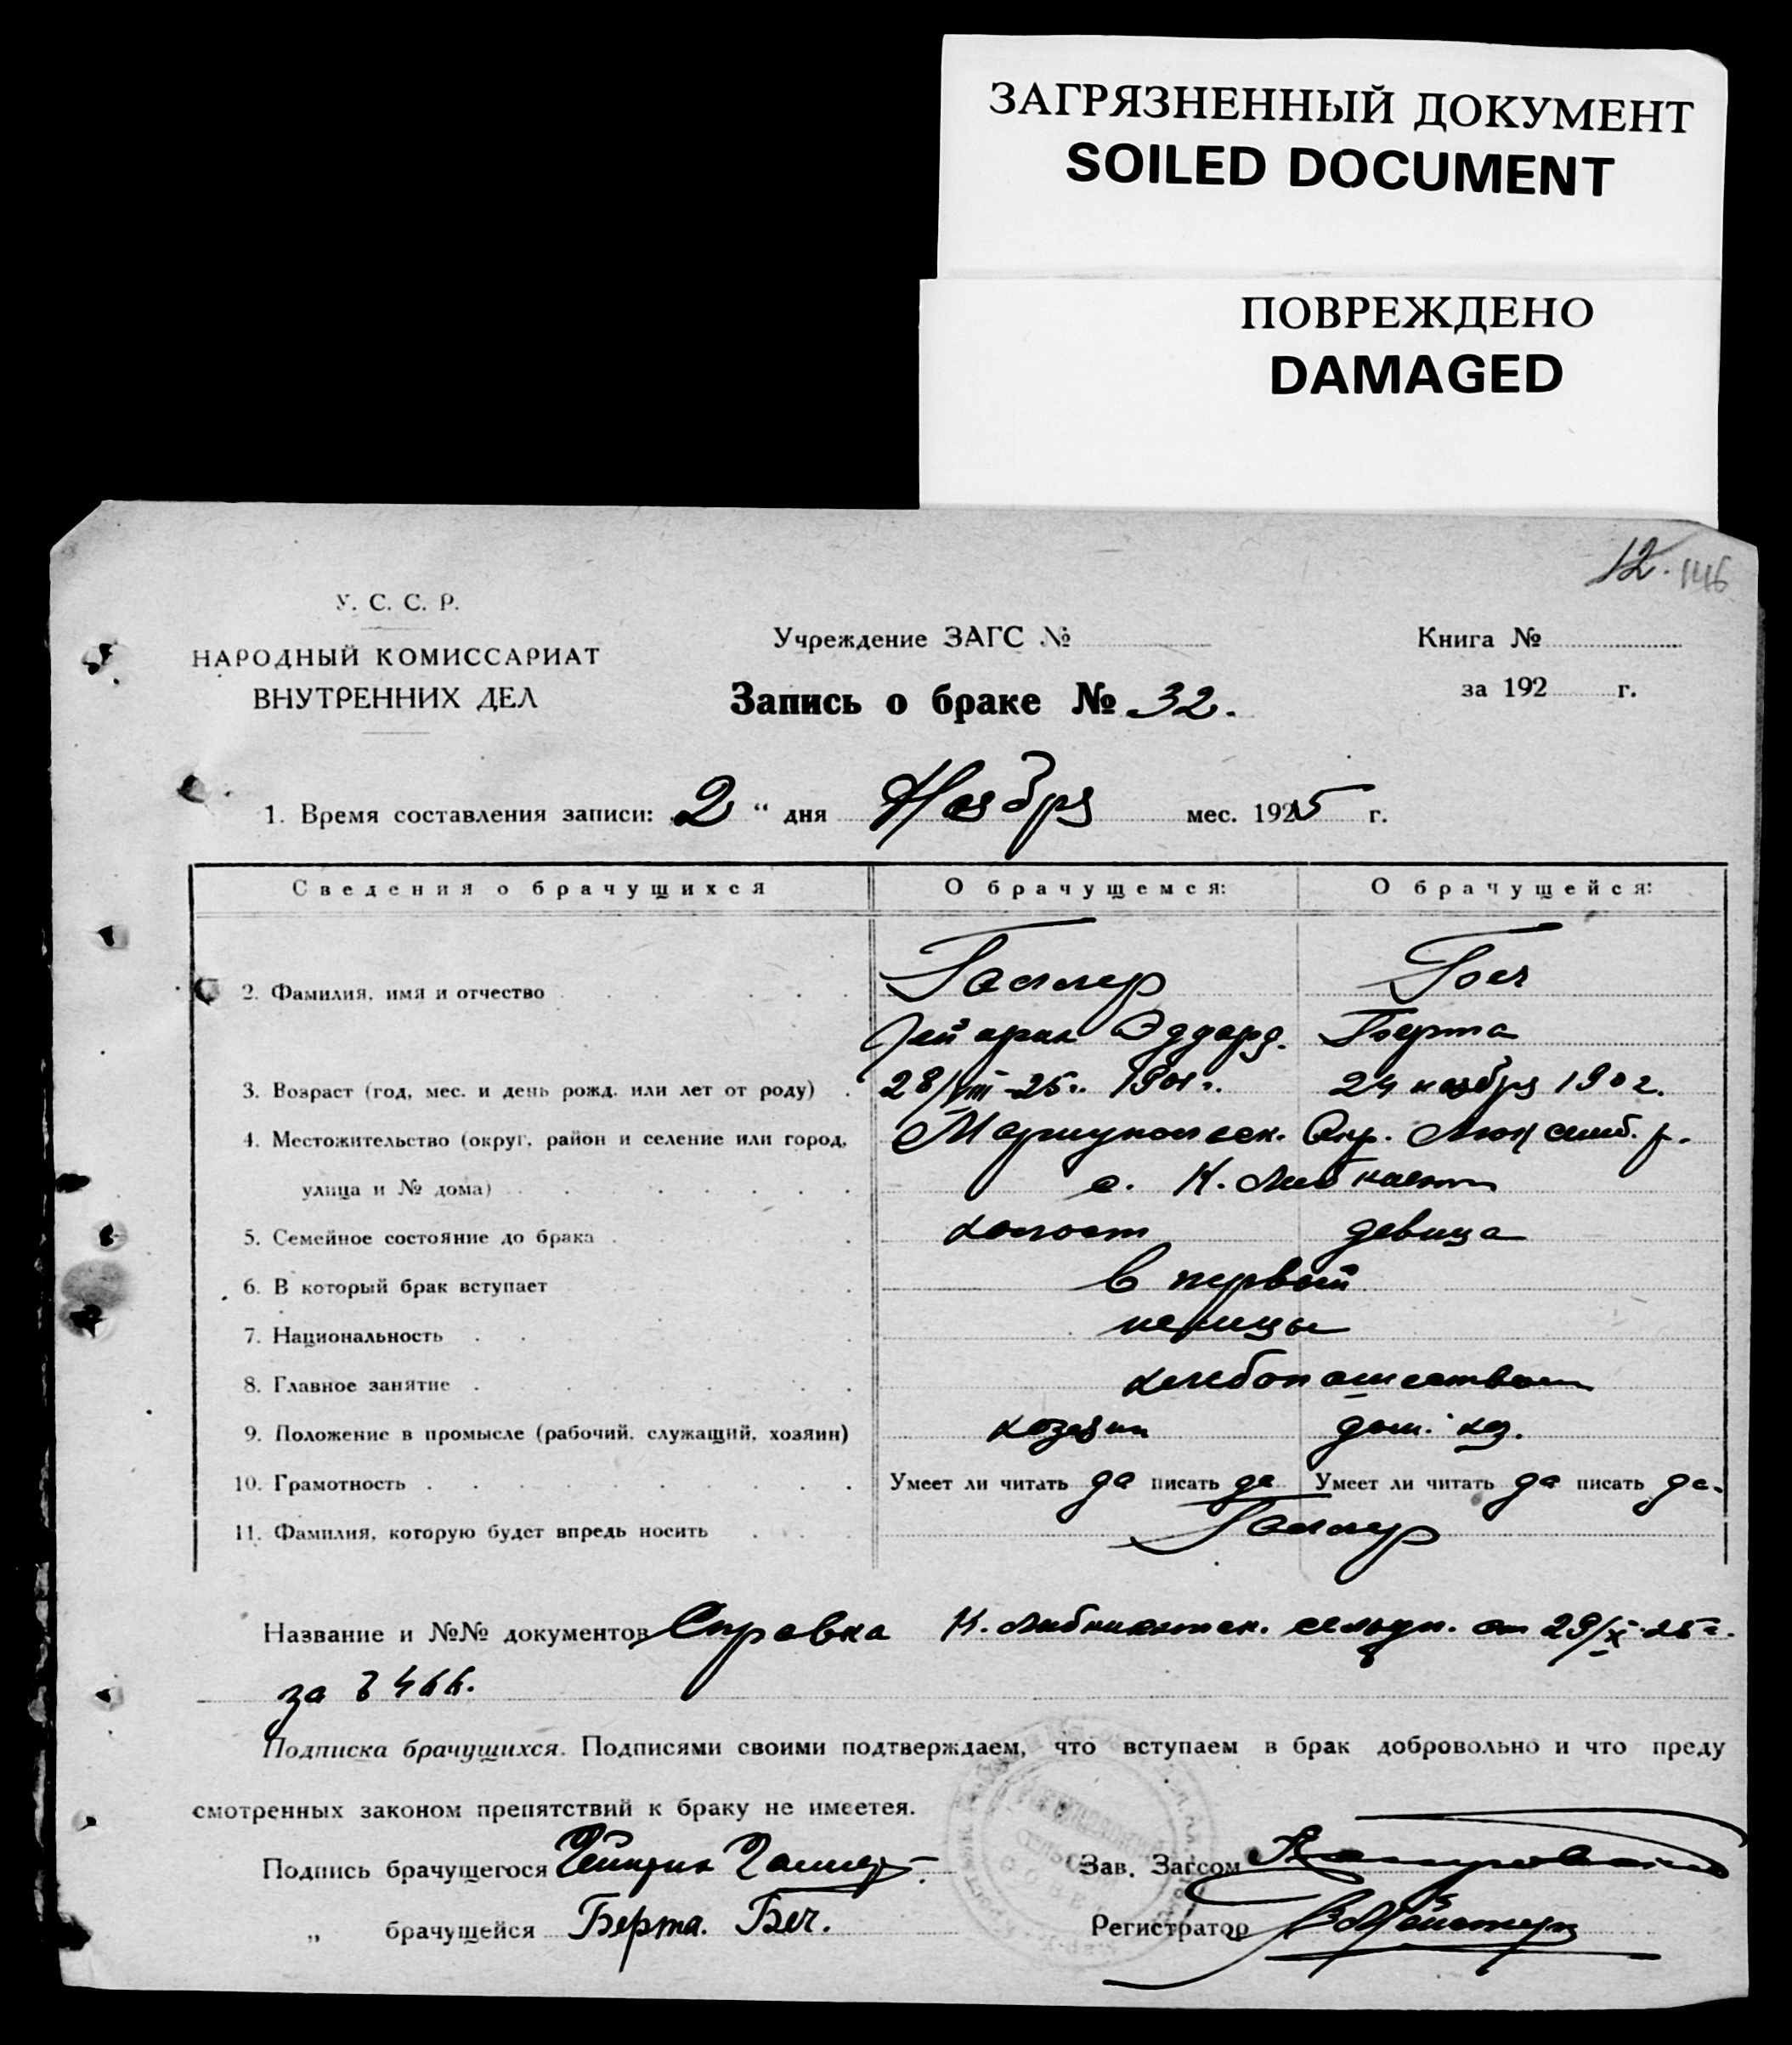 ЗАГРЯЗНЕННЫЙ ДОКУМЕНТ
SOILED DOCUMENT
ПОВРЕЖДЕНО
DAMAGED
12. 146
У. С. С. Р.
НАРОДНЫЙ КОМИССАРИАТ
ВНУТРЕННИХ ДЕЛ
Учреждение ЗАГС №
Запись о браке № 32.
Книга №
за 192 г.
1. Время составления записи: 2 " дня Ноября мес. 1925 г.
Сведения о брачущихся О брачущемся: О брачущейся:
2. Фамилия, имя и отчество Галлер Беч
Гейнрих Эдуард. Берта
3. Возраст (год, мес. и день рожд. или лет от роду) 28/VIII-25г. 1901г. 24 ноября 1902.
4. Местожительство (округ, район и селение или город, Мариупольск. Окр. Люксемб. р.
улица и № дома) с. К. Либкнехт
5. Семейное состояние до брака холост девица
6. В который брак вступает в первый
7. Национальность немцы
8. Главное занятие хлебопашеством
9. Положение в промысле (рабочий, служащий, хозяин) хозяин дом. хоз.
10. Грамотность Умеет ли читать да писать да Умеет ли читать да писать да.
11. Фамилия, которую будет впредь носить Галлер
Название и №№ документов Справка К. Либкнехтск. от 29/X-25г.
за 466.
Подписка брачущихся. Подписями своими подтверждаем, что вступаем в брак добровольно и что преду
смотренных законом препятствий к браку не имеется.
Подпись брачущегося Гейнрих Галлер. Зав. Загсом
„ брачущейся Берта. Беч. Регистратор